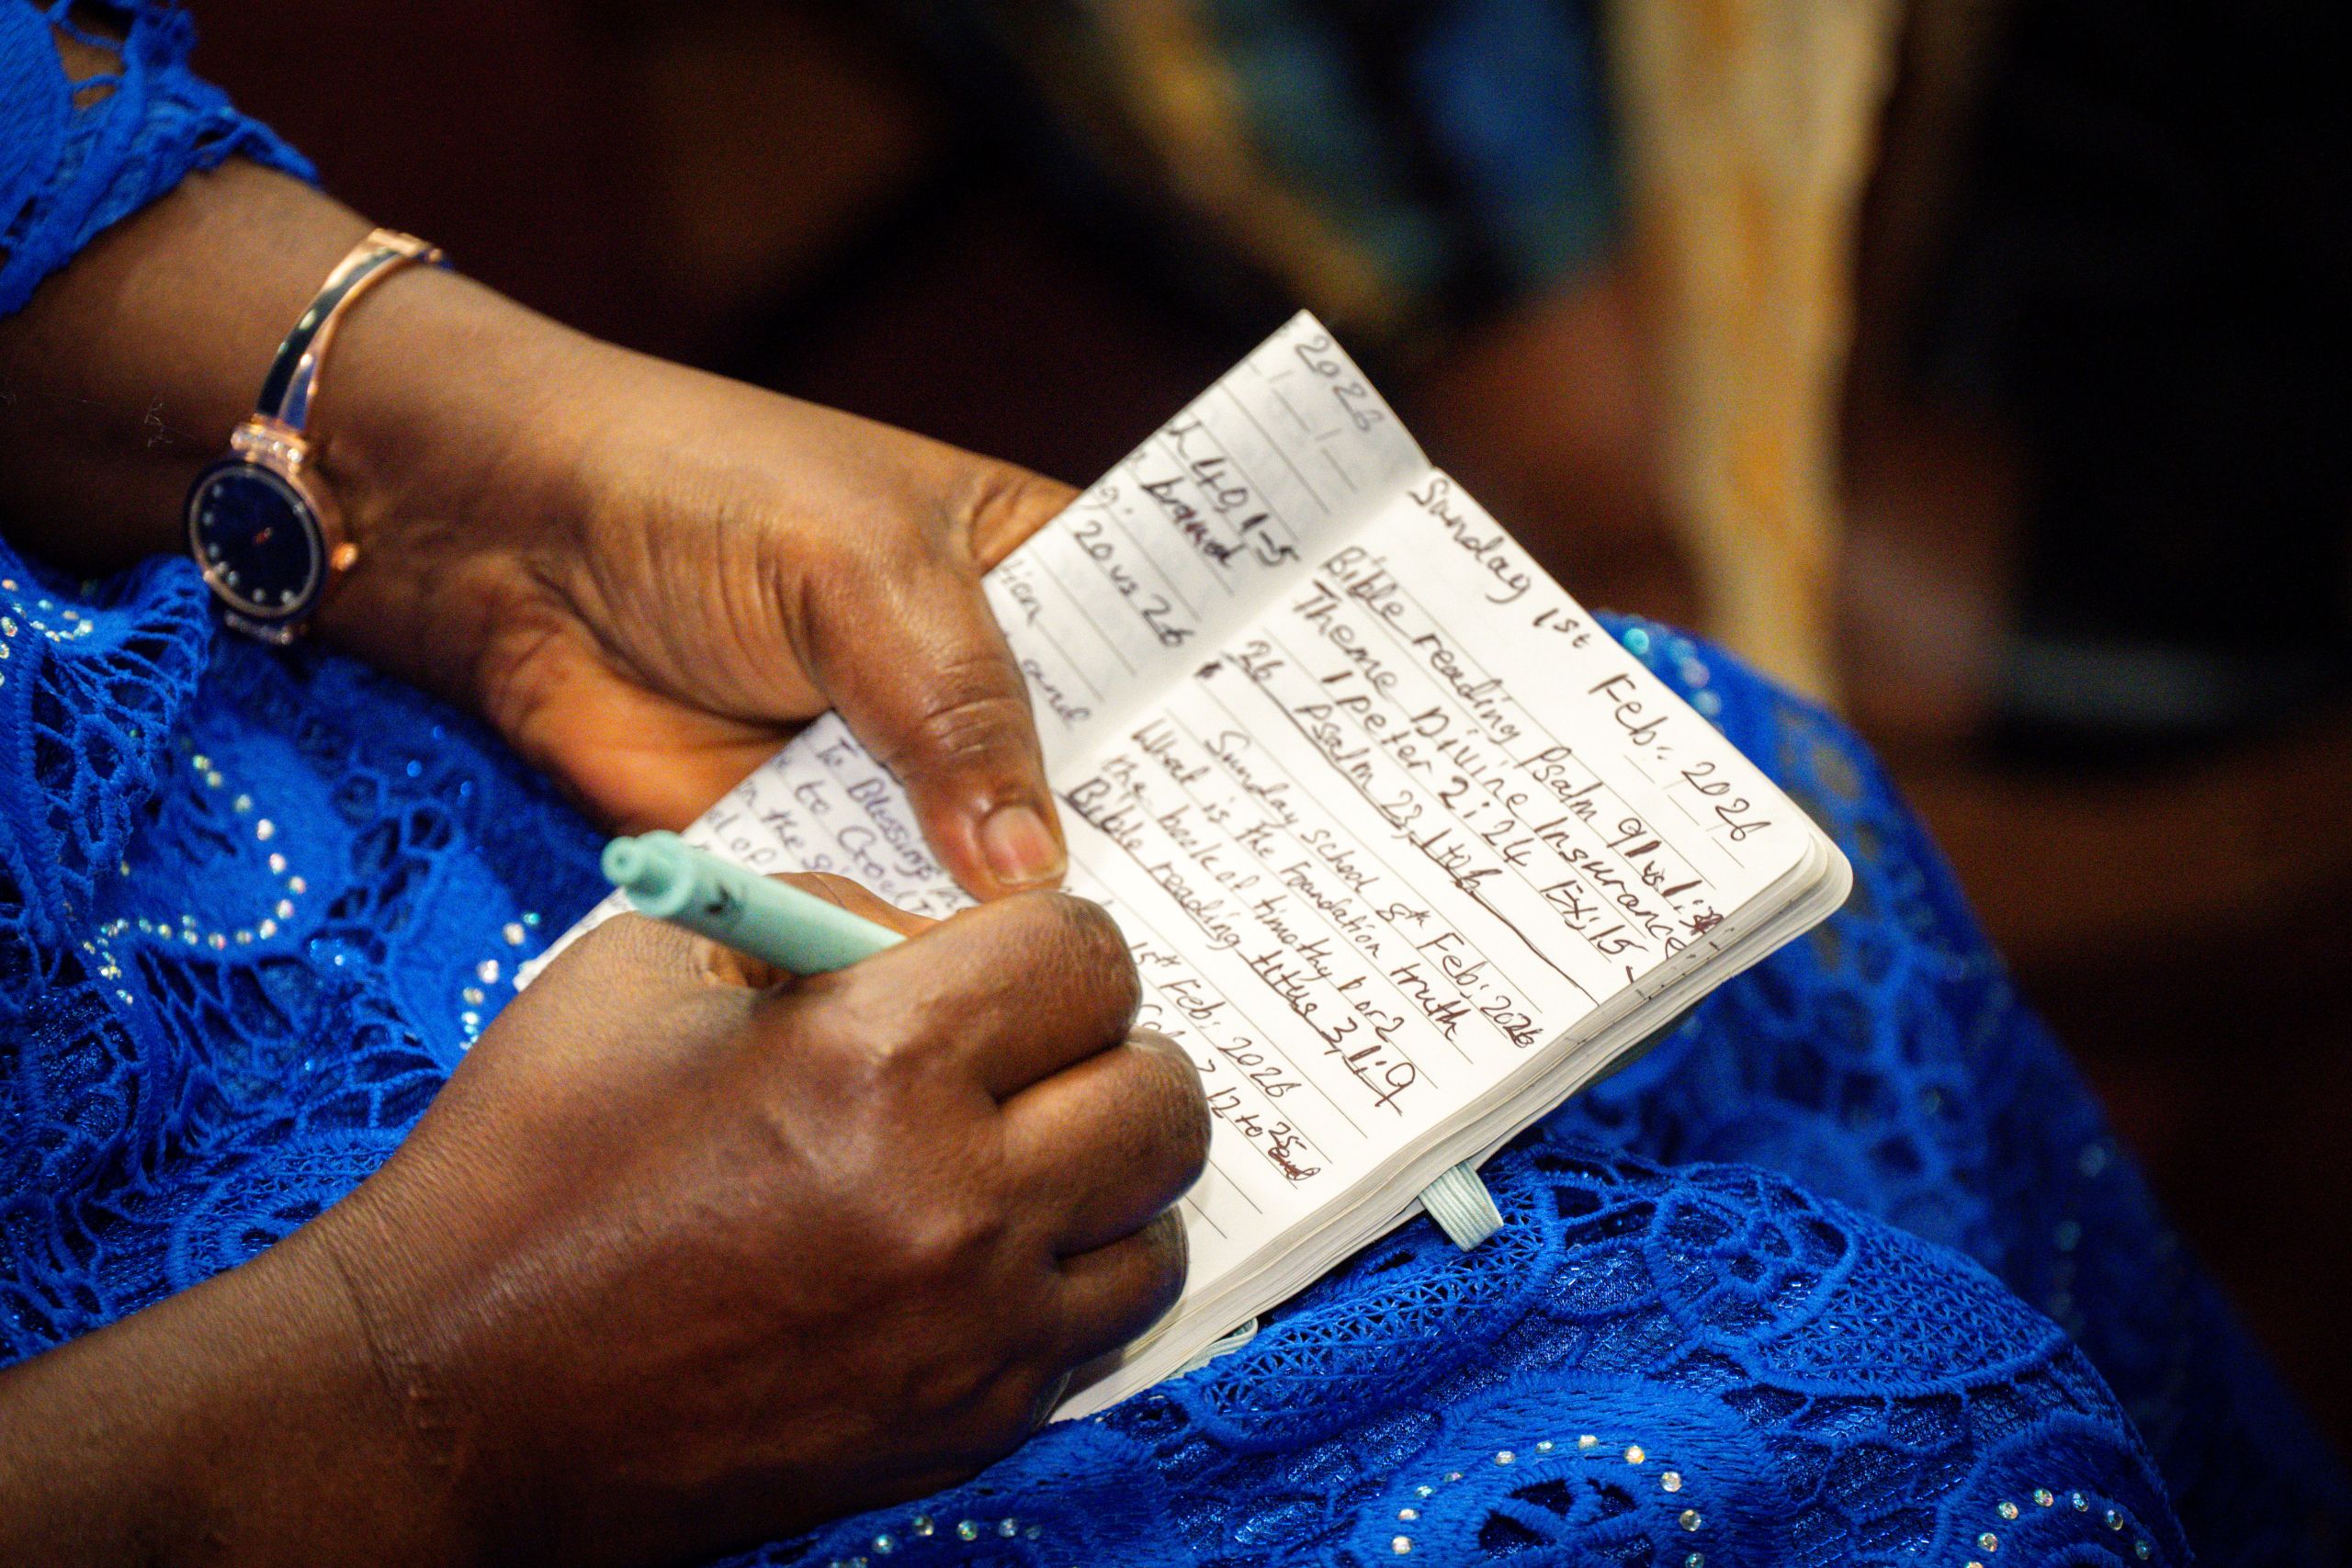 2026
40, 1-5
brand
20 vs 26
and
To Blessings
to God
in the
of
Sunday 1st Feb: 2026
Bible reading Psalm 91 vs 1:
Theme Divine Insurance
1 peter 2:24 Ex: 15
26 Psalm 23, 1 to 6
Sunday School 8th Feb: 2026
What is the Foundation truth
the book of timothy 1 or 2
Bible reading titus 3, 1:9
15th Feb: 2026
12 to 25